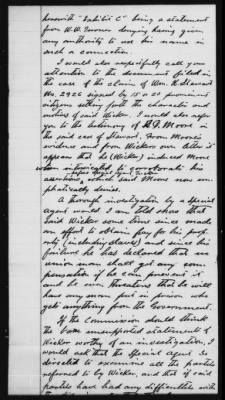 herewith "Exhibit C" being a statement
from W.W. Turner denying having given
any authority to use his name in
such a connection.
I would also respectfully call your
attention to the document filed in
the case of the claim of Wm. H. Stewart
No. 2926 signed by 15 or 20 prominent
citizens setting forth the character and
motives of said Wicker. I would also refer
you to the testimony of Moore in
the said case of Stewart. From Moore's
evidence and from Wicker's own letter it
appears that he (Wicker) induced Moore
when intoxicated to corroborate his
before Special Agent
assertions, which said Moore now em-
phatically denies.
A thorough investigation by a special
agent would I am told show that
said Wicker some time since made
an effort to obtain pay for his prop-
erty (including slaves) and since his
failure he has declared that no
union man shall get any com-
pensation if he can prevent it
and he even threatens that he will
have any man put in prison who
gets anything from the Government.
If the Commission should think
the unsupported statements of
Wicker worthy of an investigation, I
would ask that the Special Agent be
directed to examine all the parties
referred to by Wicker, and that if said
parties have had any difficulties with